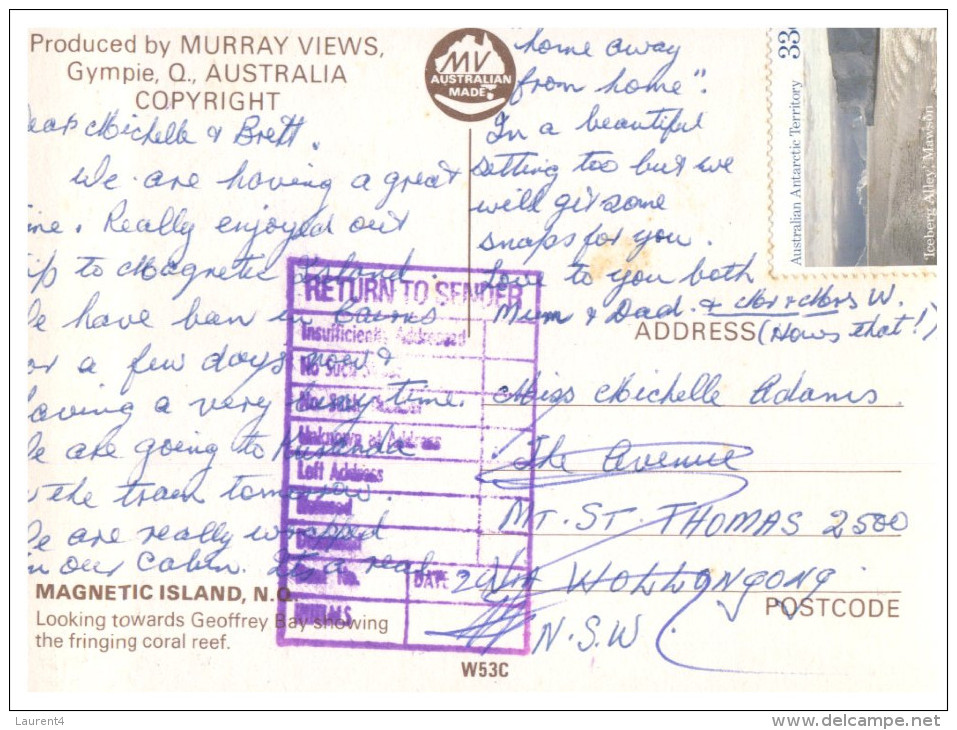 Produced by MURRAY VIEWS,
Gympie, Q., AUSTRALIA
COPYRIGHT
MV
AUSTRALIAN
MADE
ear Michelle & Brett.
We are having a great
me. Really enjoyed out
ip to Magnetic Island.
e have ban in Cairns
or a few days now &
aving a very busy time.
e are going to Kuranda
the train tomorrow.
e are really wrapped
in our Cabin. Its a real
home away
from home".
In a beautiful
setting too but we
will git some
snaps for you.
Love to you both
Mum & Dad. & Mr & Mrs W.
(Hows that!)
33c
Australian Antarctic Territory
Iceberg Alley, Mawson
RETURN TO SENDER
Insufficiently Addressed
No such
Unknown at Address
Left Address
DATE
INITIALS
ADDRESS
Miss Michelle Adams
The Avenue
MT. ST. THOMAS 2500
Via WOLLONGONG
POSTCODE
N.S.W.
MAGNETIC ISLAND, N.Q.
Looking towards Geoffrey Bay showing
the fringing coral reef.
W53C
Laurent4
delcampe.net